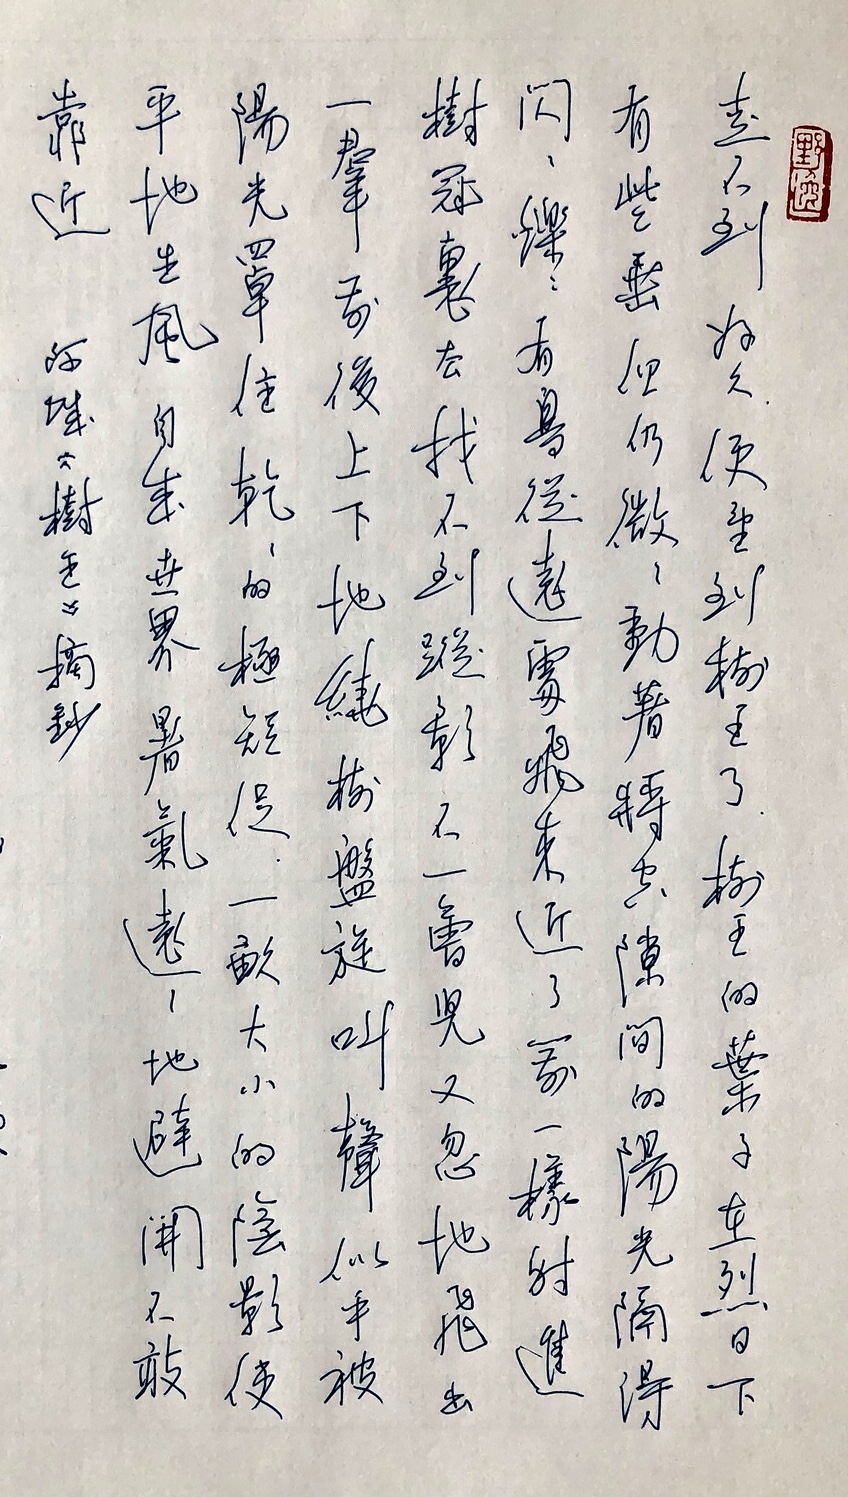 走不到好久便望到樹王了樹王的葉子在烈日下
有些垂但仍微、動著將空隙間的陽光隔得
閃、爍、有鳥從遠處飛來近了箭一樣射進
樹冠裏去找不到蹤影不一會兒又忽地飛出
一羣前後上下地繞樹盤旋叫聲似乎被
陽光罩住乾、的極短促一畝大小的陰影使
平地生風自成世界暑氣遠、地避開不敢
靠近 阿城《樹王》摘鈔